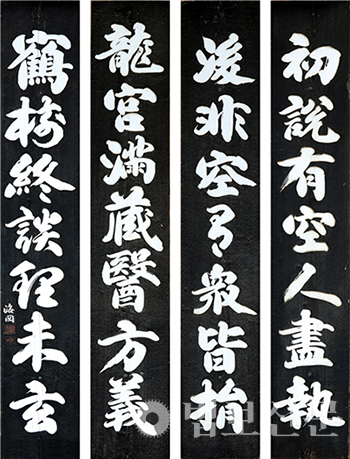 初說有空人盡執
後非空有衆皆捐
龍宮滿藏醫方義
鶴樹終談理未玄
海岡
법보신문